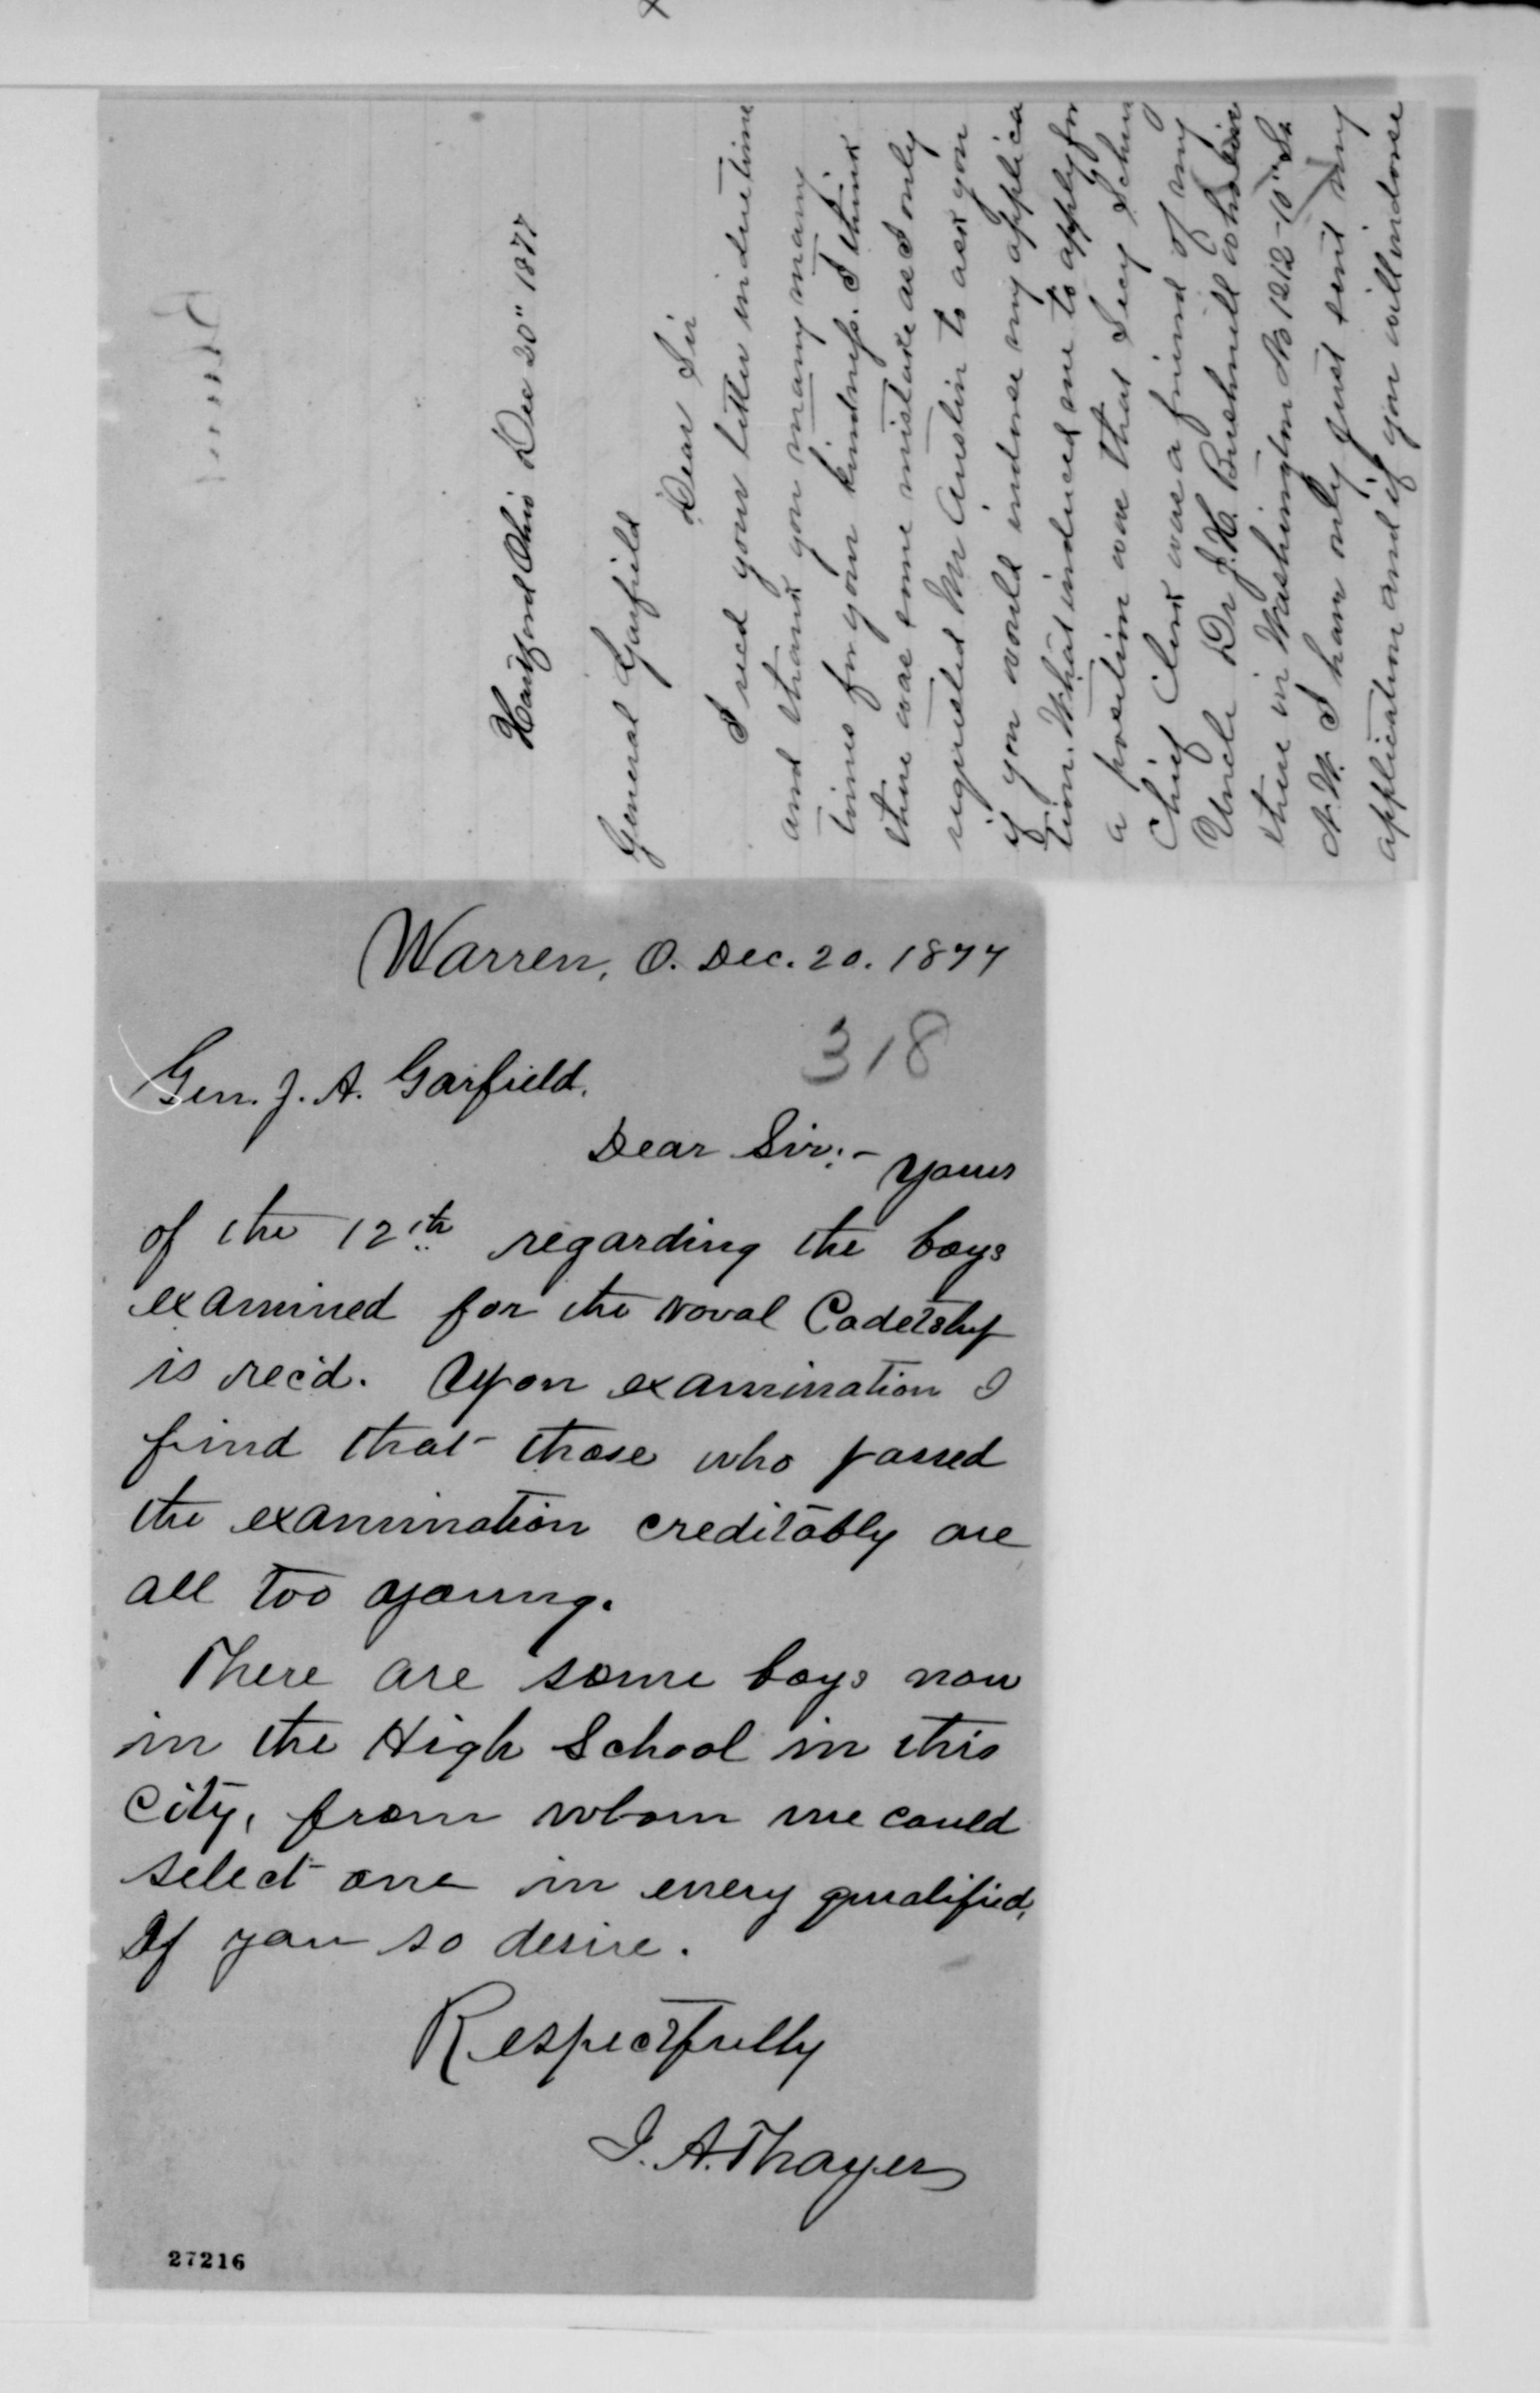 Hartford Ohio Dec 20" 1877
General Garfield
Dear Sir
I recd your letter in due time
and thank you many many
times for your kindness. I think
there was some mistake as I only
requested Mr Austin to ask you
if you would indorse my applica
tion. What induced me to apply for
a position was that Secy Schurz
Chief Clerk was a friend of my
Uncle Dr J. H. Bushnell who lives
there in Washington No 1212-10" St
N. W. I have only just sent my
application and if you will indorse
Warren, O. Dec. 20. 1877
318
Gen. J. A. Garfield.
Dear Sir:- Yours
of the 12th regarding the boys
examined for the Naval Cadetship
is rec'd. Upon examination I
find that those who passed
the examination creditably are
all too young.
There are some boys now
in the High School in this
City, from whom we could
select one in every qualified,
If you so desire.
Respectfully
I. A. Thayer
27216